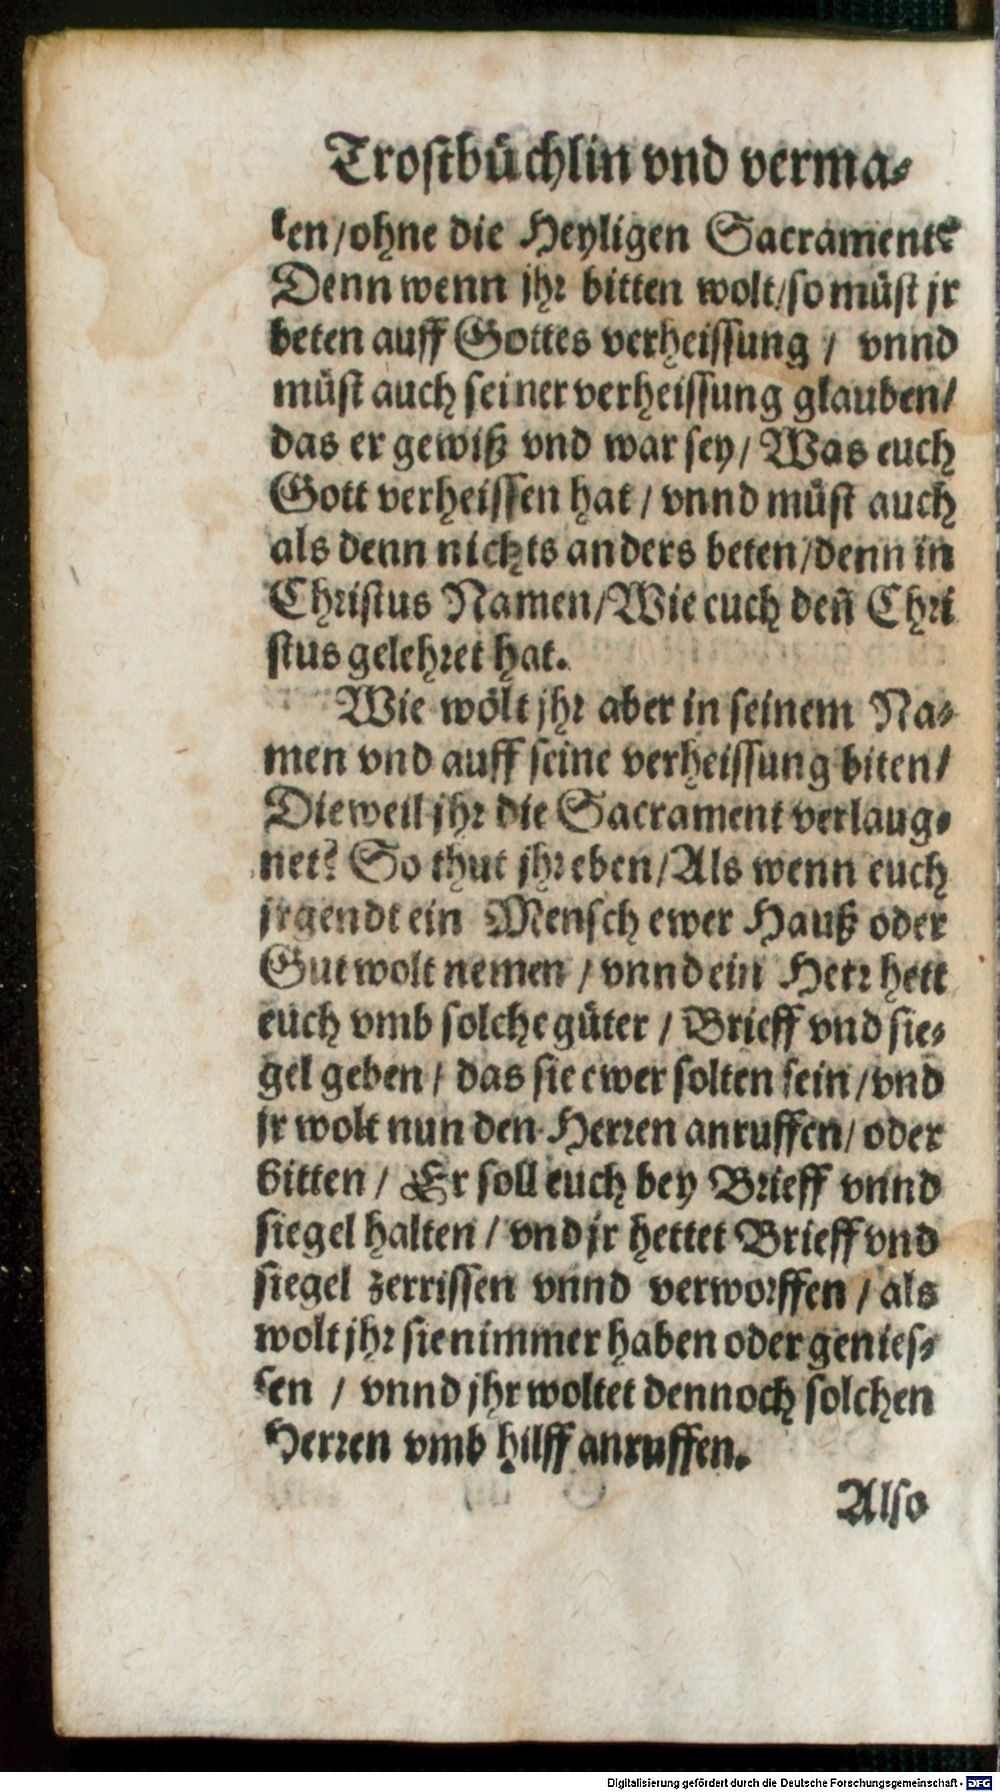 Trostbüchlin vnd verma⸗
ten/ohne die Heyligen Sacrament?
Denn wenn jhr bitten wolt/so müst jr
beten auff Gottes verheissung / vnnd
müst auch seiner verheissung glauben/
das er gewiß vnd war sey/ Was euch
Gott verheissen hat / vnnd müst auch
als denn nichts anders beten/denn in
Christus Namen/Wie euch deñ Chri
stus gelehret hat.
Wie wölt jhr aber in seinem Na⸗
men vnd auff seine verheissung biten/
Dieweil jhr die Sacrament verlaug⸗
net? So thut jhr eben/Als wenn euch
jrgendt ein Mensch ewer Hauß oder
Gut wolt nemen / vnnd ein Herr hett
euch vmb solche güter / Brieff vnd sie⸗
gel geben / das sie ewer solten sein/vnd
jr wolt nun den Herren anruffen/ oder
bitten / Er soll euch bey Brieff vnnd
siegel halten / vnd jr hettet Brieff vnd
siegel zerrissen vnnd verworffen / als
wolt jhr sie nimmer haben oder genies⸗
sen / vnnd jhr woltet dennoch solchen
Herren vmb hilff anruffen.
Also
Digitalisierung gefördert durch die Deutsche Forschungsgemeinschaft - DFG